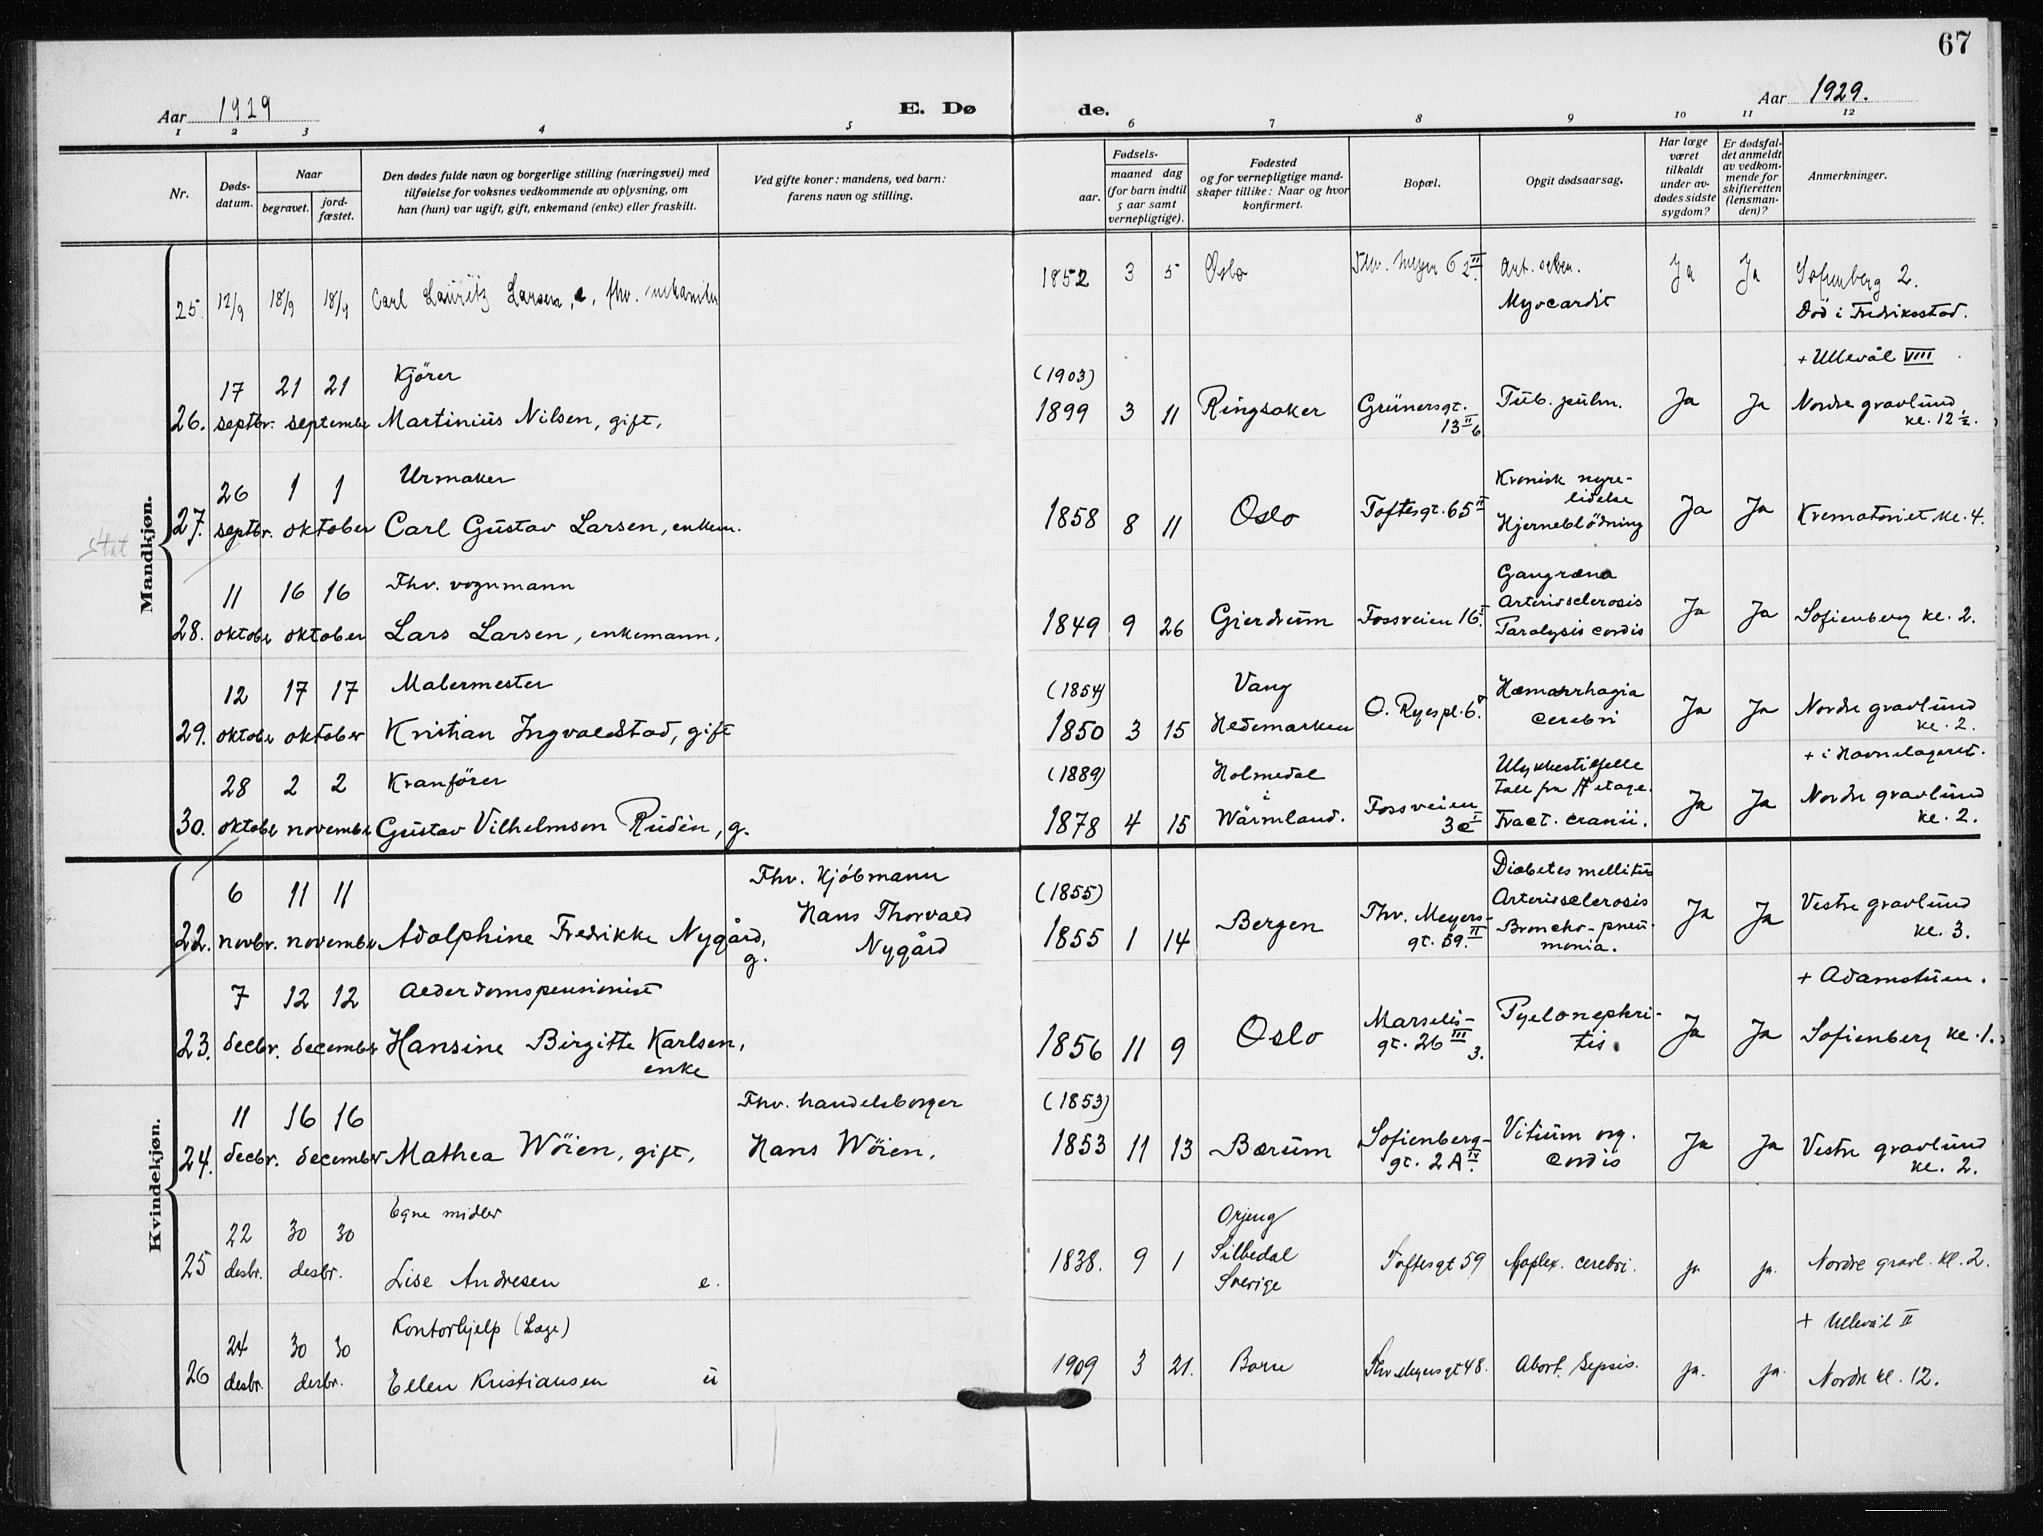 67
Aar 1929
E. Dø
de.
Aar 1929.
1 2 3 4 5 6 7 8 9 10 11 12
Nr.
Døds-
datum.
Naar
begravet.
jord-
fæstet.
Den dødes fulde navn og borgerlige stilling (næringsvei) med
tilføielse for voksnes vedkommende av oplysning, om
han (hun) var ugift, gift, enkemand (enke) eller fraskilt.
Ved gifte koner: mandens, ved barn:
farens navn og stilling.
Fødsels-
aar.
maaned dag
(for barn indtil
5 aar samt
vernepligtige).
Fødested
og for vernepligtige mand-
skaper tillike: Naar og hvor
konfirmert.
Bopæl.
Opgit dødsaarsag.
Har læge
været
tilkaldt
under av-
dødes sidste
sygdom?
Er dødsfal-
det anmeldt
av vedkom-
mende for
skifteretten
(lensman-
den)?
Anmerkninger.
Mandkjøn.
25. 12/9 18/9 18/9 Carl Lauritz Larsen, e, fhv. mekaniker 1852 3 5 Oslo Thv. Meyer 62 II Art. scler. Ja Ja Sofienberg 2.
Myocardit Död i Fredriksstad.
Kjörer (1903) + Ullevål VIII
17 21 21
26. septbr. september Martinius Nilsen, gift, 1899 3 11 Ringsaker Grünersgt. Tub. pulm. Ja Ja Nordre gravlund
13 II 6 kl. 12 1/2.
Urmaker Kronisk nyre-
26 1 1 lidelse
27. septbr. oktober Carl Gustav Larsen, enkem. 1858 8 11 Oslo Toftesgt. 65 II Hjerneblödning Ja Ja Krematoriet kl. 4.
Fhv. vognmann Gangræna
11 16 16 Arteriosclerosis
28. oktober oktober Lars Larsen, enkemann, 1849 9 26 Gjerdrum Fossveien 16 I Paralysis cordis Ja Ja Sofienberg kl. 2.
Malermester (1854) Vang Hæmorrhagia
12 17 17
29. oktober oktober Kristian Ingvaldstad, gift 1850 3 15 Hedemarken O. Ryespl. 6. cerebri Ja Ja Nordre gravlund
kl. 2.
Kranförer (1889) Holmedal Ulykkestilfelle + i Havnelageret.
28 2 2 i
30. oktober november Gustav Vilhelmson Rudén, g. 1878 4 15 Wärmland. Fossveien Ja Ja Nordre gravlund
3c I Fract. cranii. kl. 2.
Kvindekjøn.
Fhv. Kjöbmann (1855) Diabetes mellitus
6 11 11 Hans Thorvald Arteriosclerosis Vestre gravlund
22. novbr. november Adolphine Fredrikke Nygård, Nygård 1855 1 14 Bergen Thv. Meyers- Broncho-pneu- Ja Ja kl. 3.
g. gt. 59. II monia.
Alderdomspensionist + Adamstuen.
7 12 12 Marselis- Pyelonephri-
23. decbr. december Hansine Birgitte Karlsen, 1856 11 9 Oslo gt. 26 III 3. tis. Ja Ja Sofienberg kl. 1.
enke
Fhv. handelsborger (1853)
11 16 16 Sofienberg- Vitium org.
24. decbr. december Mathea Wöien, gift, Hans Wöien, 1853 11 13 Bærum gt. 2A IV. cordis Ja Ja Vestre gravlund
kl. 2.
Egne midler
22 30 30 Silbedal
25 desbr. desbr. Lise Andresen e. 1838. 9 1 Sverige Toftesgt 59 Apoplex. cerebri. ja ja. Nordre gravl. kl. 2.
Kontorhjelp (Læge) + Ullevål II
24 30 30
26 desbr. desbr. Ellen Kristiansen u 1909 3 21. Borre Thv Meyersgt 48. Abort. Sepsis. ja. ja. Nordre kl. 12.